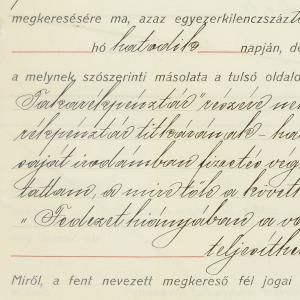 megkeresésére ma, azaz egyezerkilenczszázt
hó hatodik napján, de
a melynek, szószerinti másolata a tulsó oldalo
Takarékpénztár" részére
rékpénztár titkárának - ha
saját irodámban fizetés vég
tattam, a mire tőle a követ
„Fedezet hiányában a vá
teljesíthe
Miről, a fent nevezett megkereső fél jogai